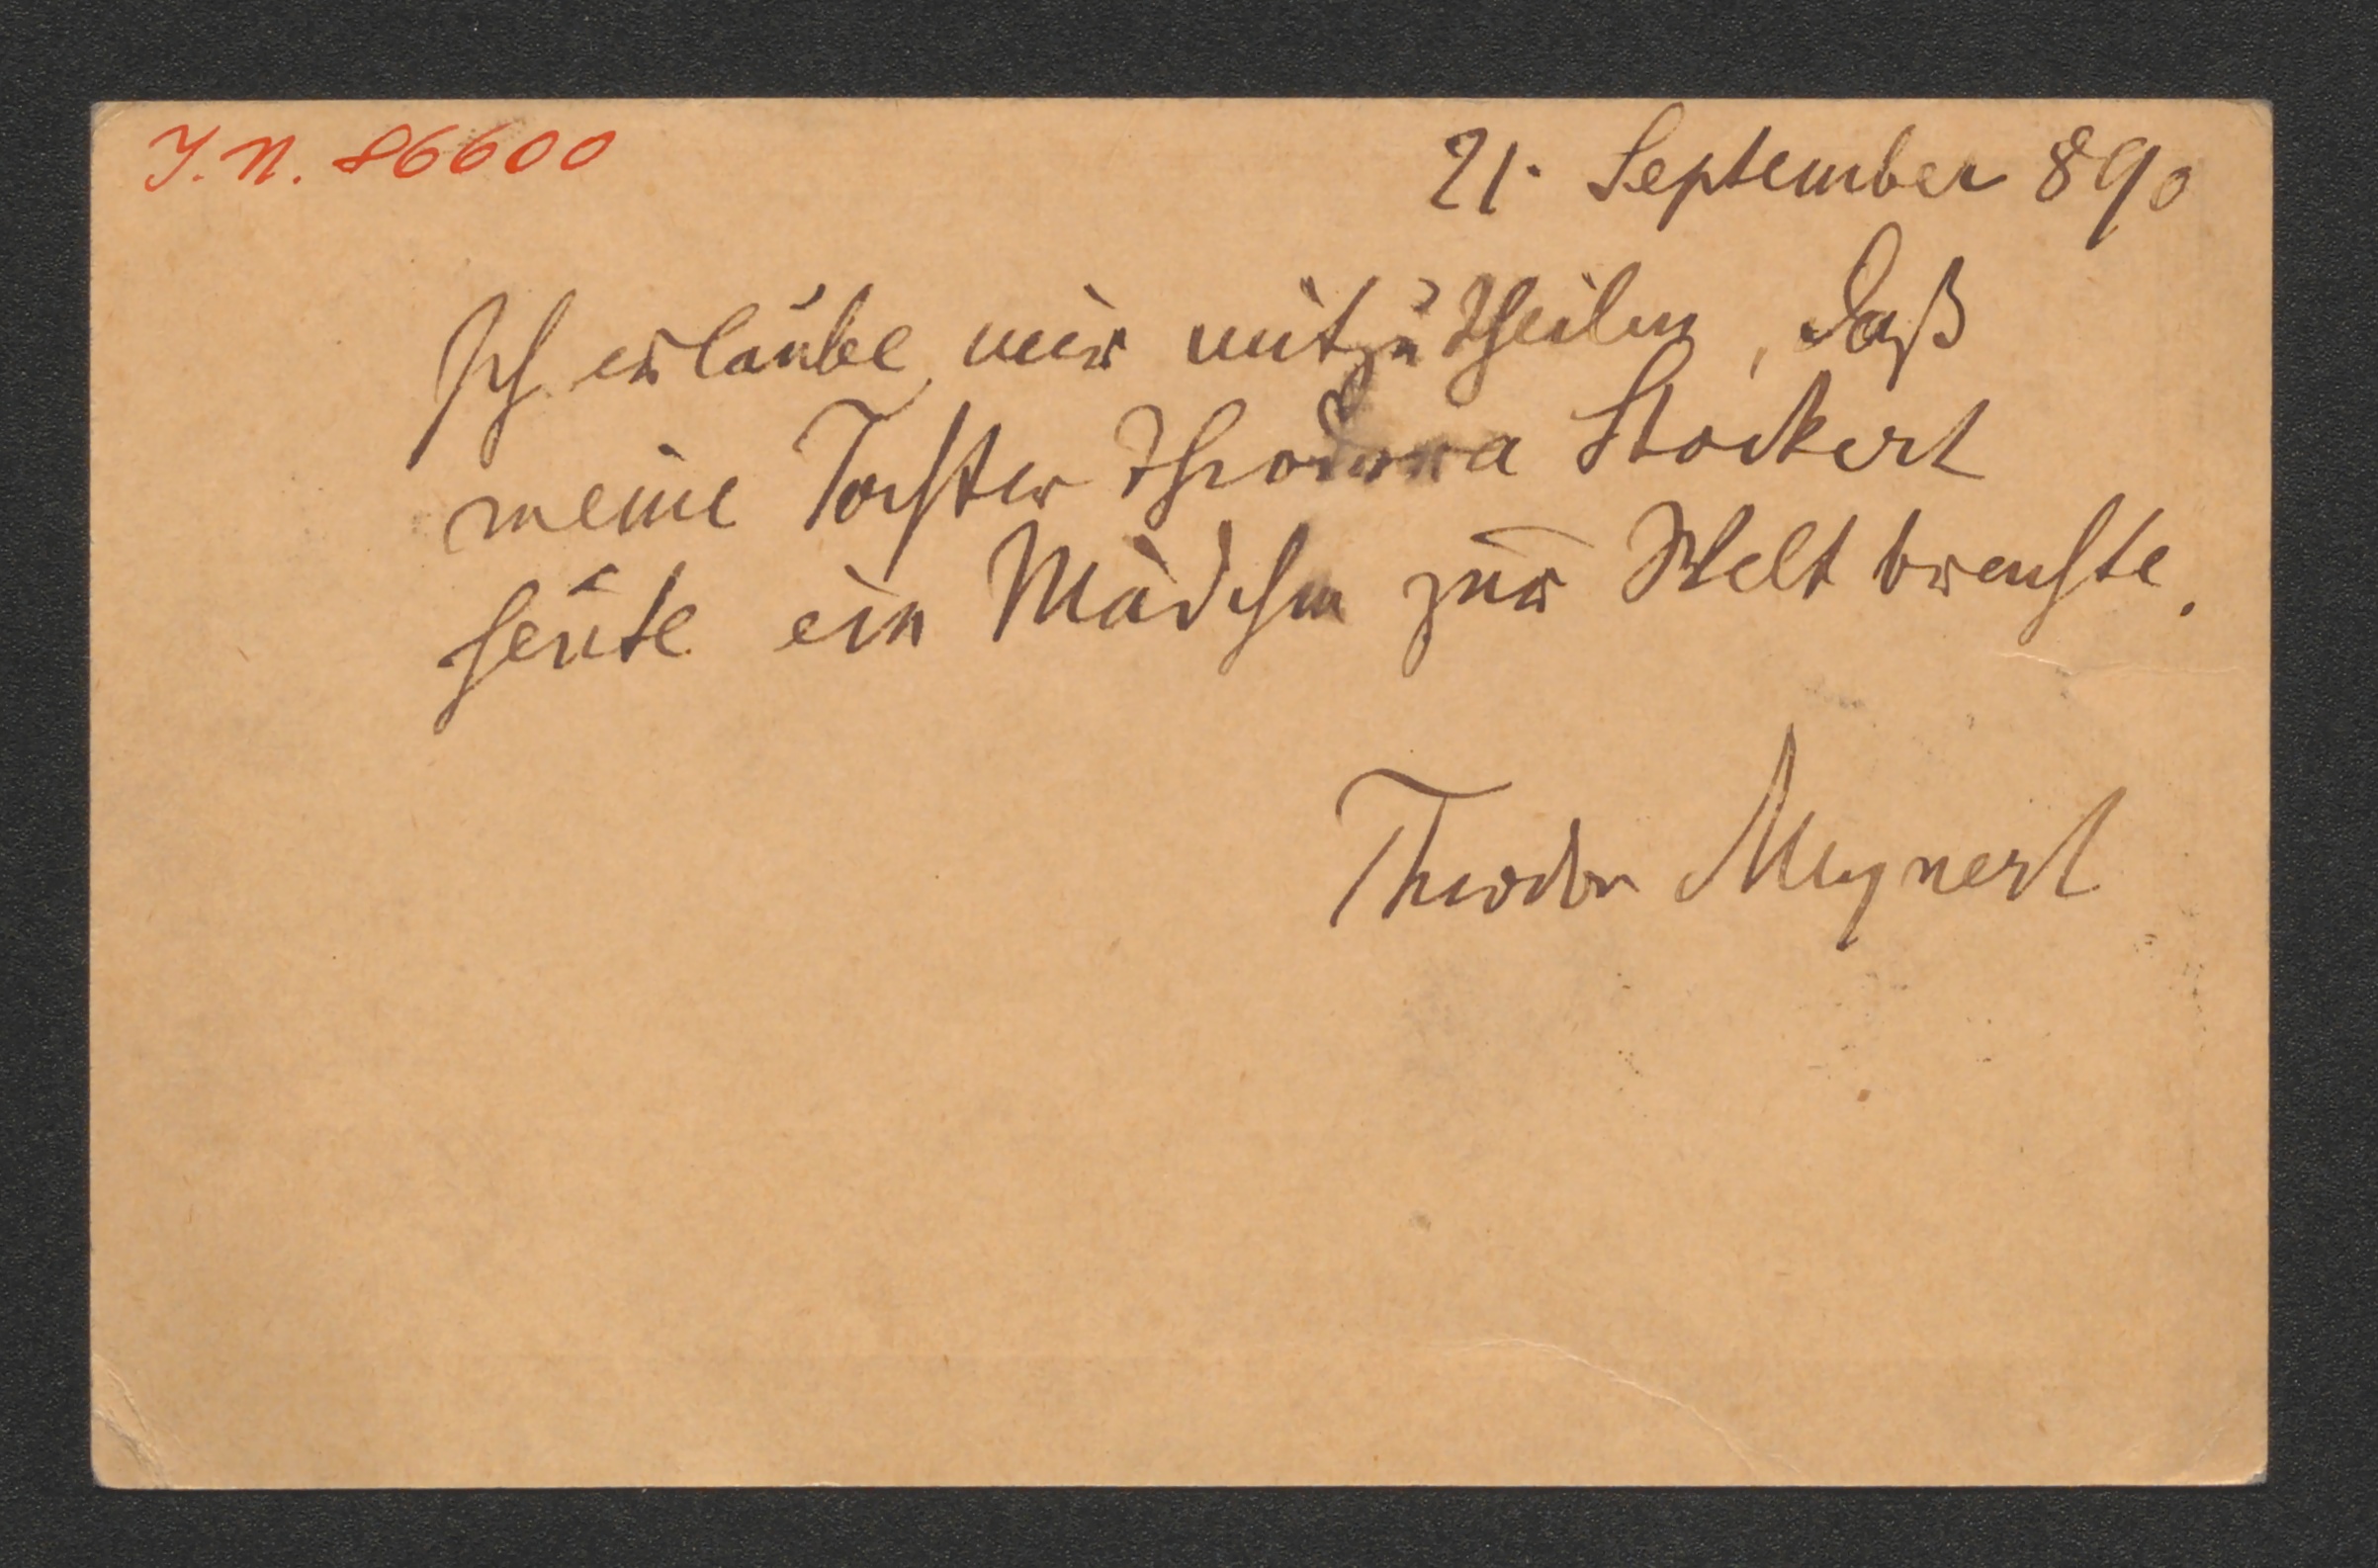 J.N. 86600
21. September 890
Ich erlaube mir mitzutheilen, daß
meine Tochter Theodora Stockert
heute ein Mädchen zur Welt brachte.
Theodor Meynert